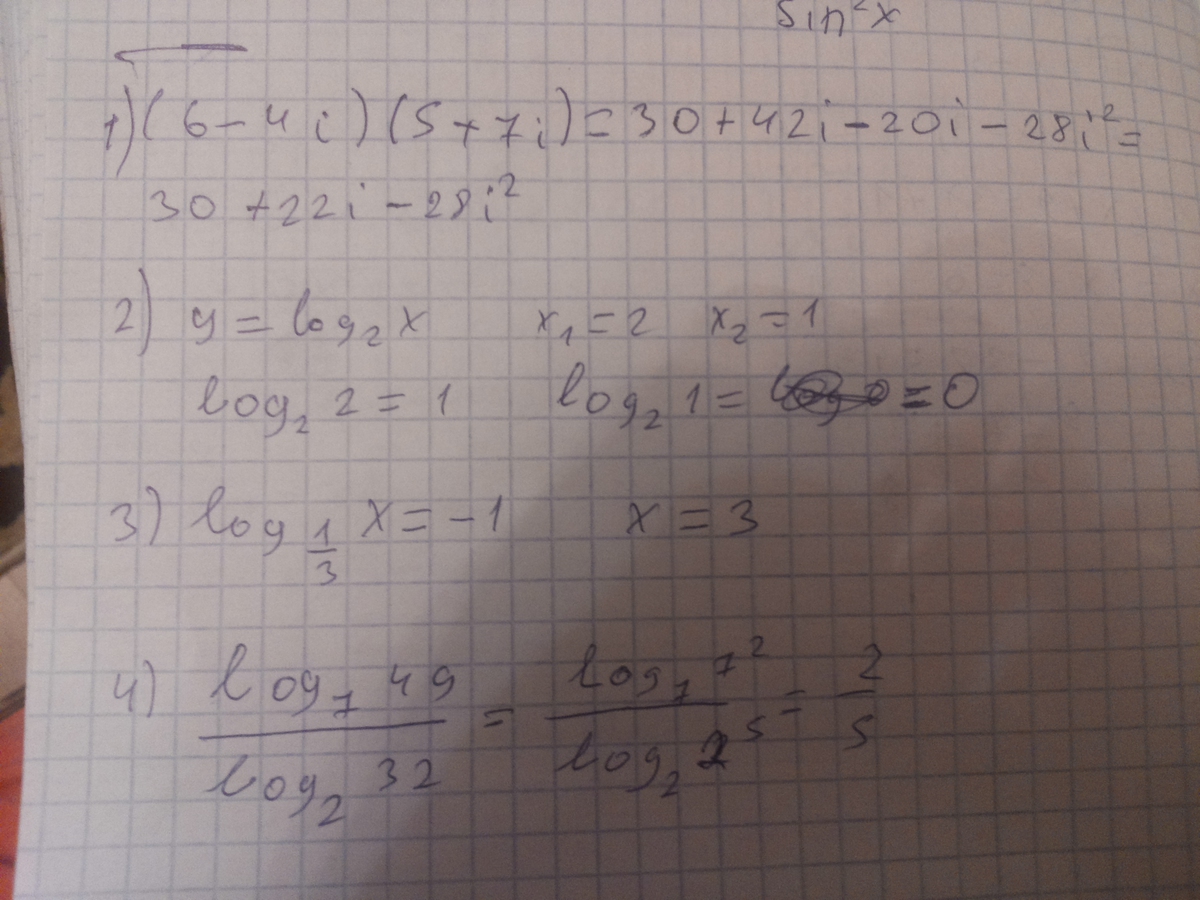 sin²x
1) (6 - 4i)(5 + 7i) = 30 + 42i - 20i - 28i² =
30 + 22i - 28i²
2) y = log₂ x x₁ = 2 x₂ = 1
log₂ 2 = 1 log₂ 1 = = 0
3) log_(1/3) x = -1 x = 3
4) (log₇ 49)/(log₂ 32) = (log₇ 7²)/(log₂ 2⁵) = 2/5